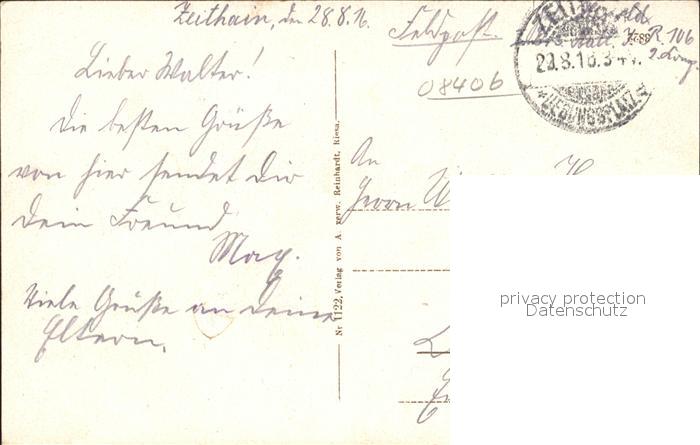 Zeithain, den 28.8.16.
Feldpost.
J. R. 106
2. Komp.
ZEITHAIN
29.8.16.3-4N.
* UEBUNGSPLATZ *
08406
Lieber Walter!
Die besten Grüße
von hier sendet Dir
Dein Freund
Max.
Viele Grüße an Deine
Eltern.
Nr 1122, Verlag von A. verw. Reinhardt, Riesa.
An
Herrn
privacy protection
Datenschutz